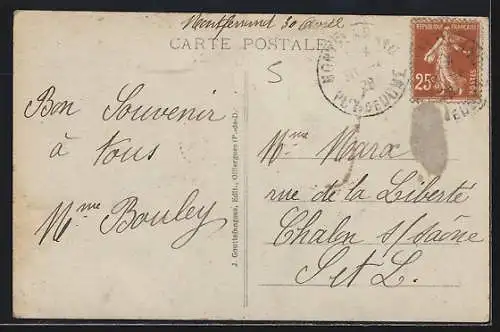 Montferrand 30 avril
CARTE POSTALE
5
MONTFERRAND
28
PUY-DE-DOME
REPUBLIQUE FRANÇAISE
25c
POSTES
Bon Souvenir
à tous
Mme Bouley
J. Gouttefangeas, Édit., Olliergues (P.-de-D.)
Mme Marx
rue de la Liberté
Chalon s/Saône
S et L.